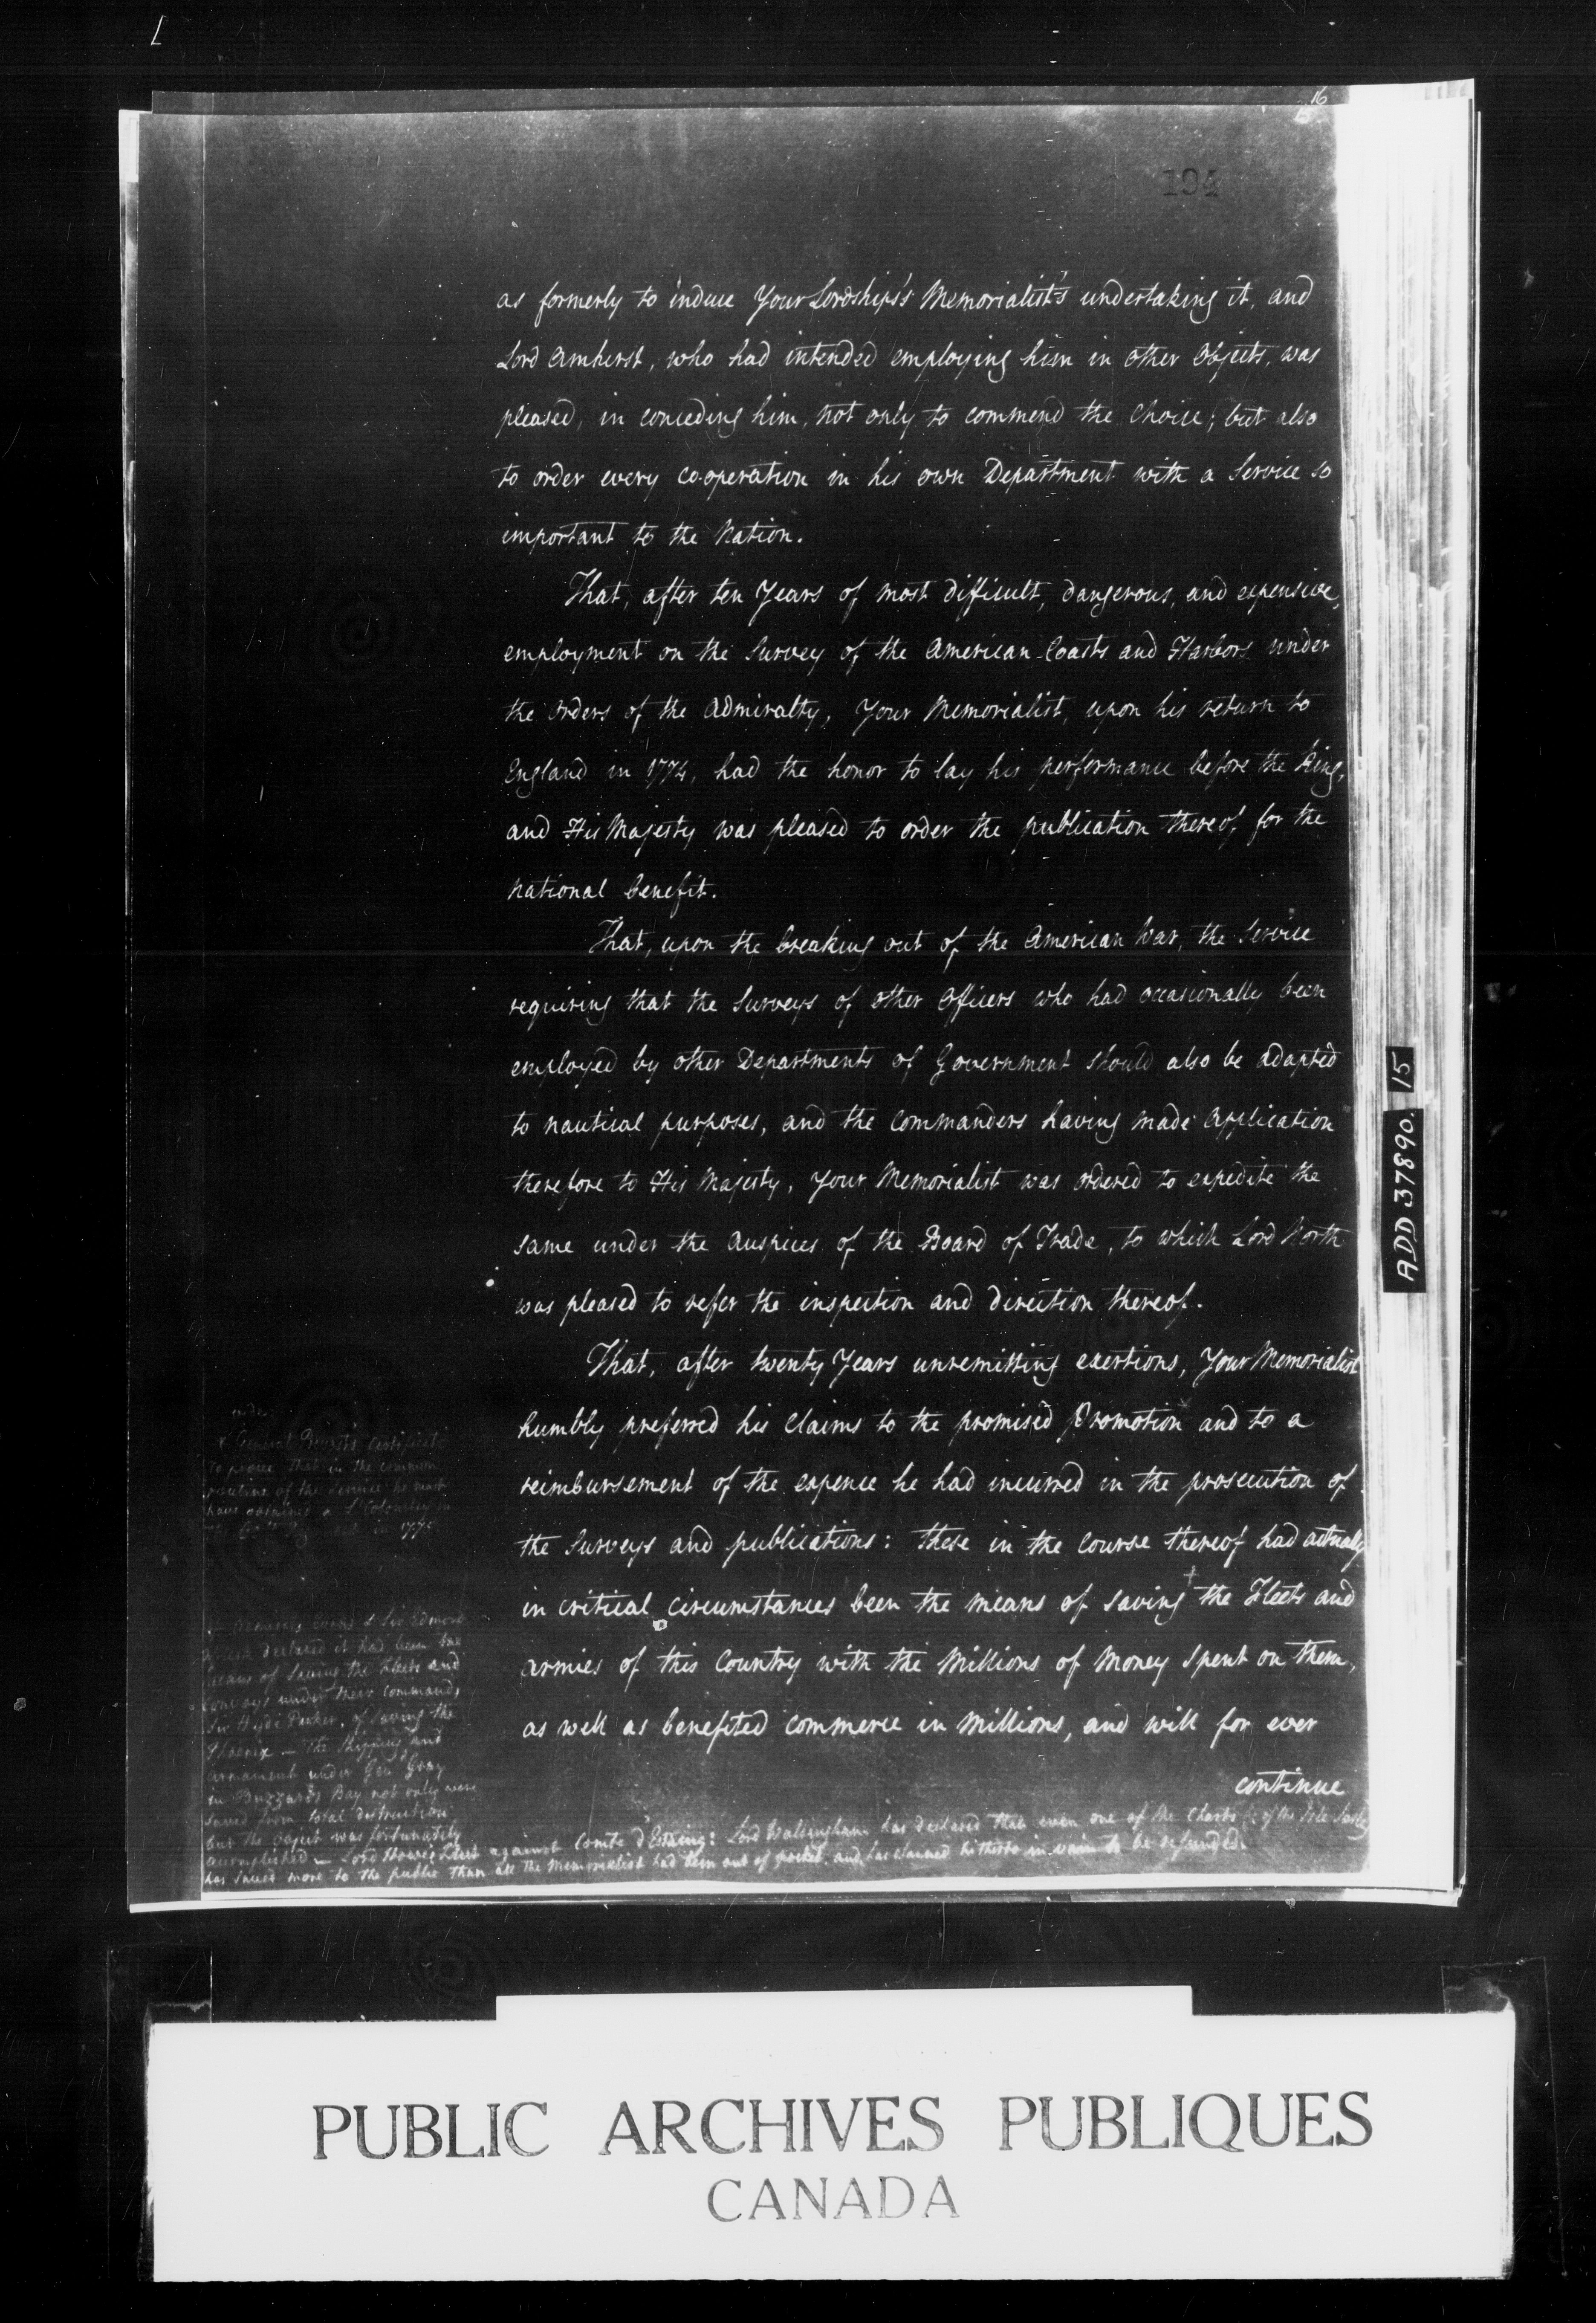 16
15
194
as formerly to induce Your Lordships's Memorialist's undertaking it, and
Lord Amherst, who had intended employing him in other Objects, was
pleased, in conceding him, not only to commend the Choice; but also
to order every co-operation in his own Department with a Service so
important to the Nation.
That, after ten Years of most difficult, dangerous, and expensive,
employment on the Survey of the American Coasts and Harbors under
the orders of the Admiralty, Your Memorialist, upon his return to
England in 1774, had the honor to lay his performance before the King,
and His Majesty was pleased to order the publication thereof for the
National benefit.
That, upon the breaking out of the American War, the Service
requiring that the Surveys of other Officers who had occasionally been
employed by other Departments of Government should also be adapted
to nautical purposes, and the Commanders having made application
therefore to His Majesty, Your Memorialist was ordered to expedite the
same under the Auspices of the Board of Trade, to which Lord North
was pleased to refer the inspection and direction thereof.
That, after twenty Years unremitting exertions, Your Memorialist
humbly preferred his Claims to the promised Promotion* and to a
reimbursement of the expence he had incurred in the prosecution of
the Surveys and publications: these in the course thereof had actually
in critical circumstances been the means of saving † the Fleets and
armies of this Country with the Millions of Money spent on them,
as well as benefited Commerce in Millions, and will for ever
continue
vide
* General Prevosts Certificate
to prove that in the common
routine of the Service he must
have obtained a Lt Colonelcy in
in 1775
† Admirals Evans & Sir Edmond
Affleck declared it had been the
means of saving the Fleets and
Convoys under their Command,
Sir Hyde Parker, of saving the
Phoenix — The Shipping and
armament under Genl Gray
in Buzzards Bay not only were
saved from total destruction
but the object was fortunately
accomplished — Lord Howe's Fleet against Comte d'Estaing: Lord Walsingham has declared that even one of the Charts of the Isle Sable
has saved more to the public than all the Memorialist had been out of pocket, and has claimed hitherto in vain to be refunded.
ADD 37890. 15
PUBLIC ARCHIVES PUBLIQUES
CANADA